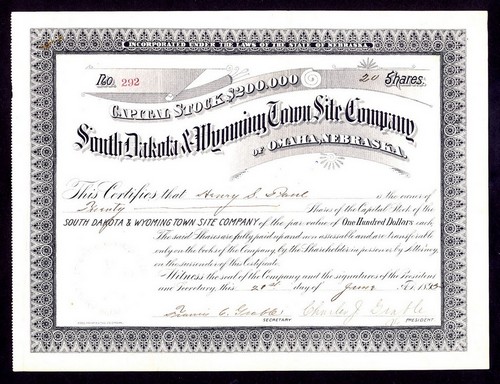 INCORPORATED UNDER THE LAWS OF THE STATE OF NEBRASKA
No. 292
20 Shares.
CAPITAL STOCK $200,000
South Dakota & Wyoming Town Site Company
OF OMAHA, NEBRASKA.
This Certifies that Henry S. is the owner of
Twenty Shares of the Capital Stock of the
SOUTH DAKOTA & WYOMING TOWN SITE COMPANY of the par value of One Hundred Dollars each
The said Shares are fully paid up and non assessable and are transferable
only on the books of the Company, by the Shareholder in person or by Attorney,
on the surrender of this Certificate.
Witness the seal of the Company and the signatures of the President
and Secretary, this 20th day of June A.D. 18
Francis C. Grable
SECRETARY
Charles J. Grable
PRESIDENT